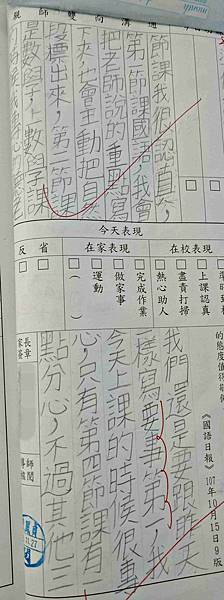 親師雙向溝通
節課我很認真,
第一節課國語,我會
把老師說的重點寫
下來,也會主動把自
段標出來,第二節課
是數學,上數學課
今天表現
在校表現
在家表現
反省
上課認真
盡責打掃
熱心助人
完成作業
做家事
運動
( )
《國語日報》107年10月15日9版
我們還是要跟昨天
一樣寫要事第一,我
今天上課的時候很專
心,只有第四節課有一
點分心,不過其他三
11.27